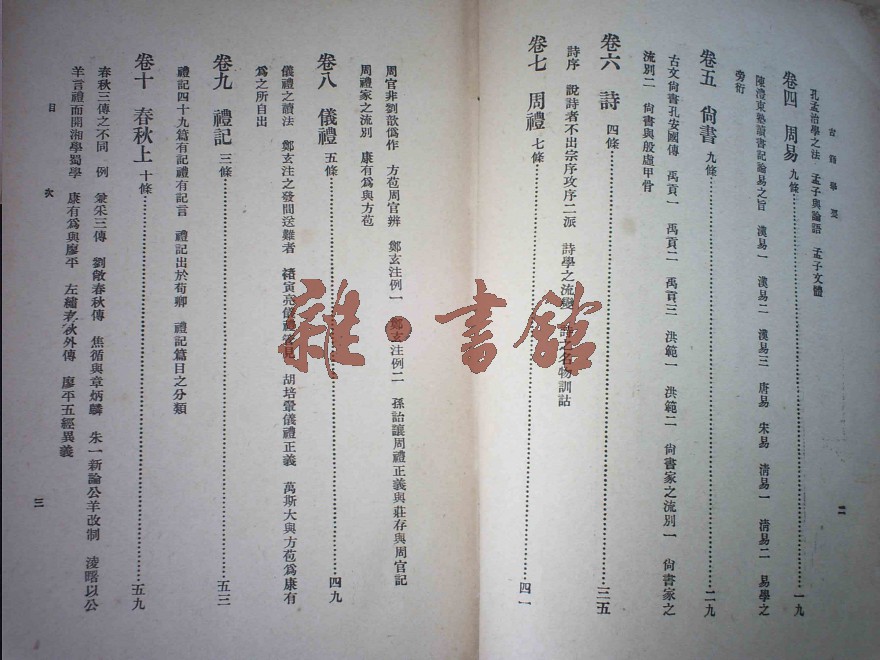 古籍學要
二
孔孟治學之法　孟子與論語　孟子文體
卷四　周易　九條……一九
陳澧東塾讀書記論易之旨　漢易一　漢易二　漢易三　唐易　宋易　清易一　清易二　易學之
旁衍
卷五　尚書　九條……二九
古文尚書孔安國傳　禹貢一　禹貢二　禹貢三　洪範一　洪範二　尚書家之流別一　尚書家之
流別二　尚書與殷虛甲骨
卷六　詩　四條……三五
詩序　說詩者不出宗序攻序二派　詩學之流變　詩之名物訓詁
卷七　周禮　七條……四一
周官非劉歆僞作　方苞周官辨　鄭玄注例一　鄭玄注例二　孫詒讓周禮正義與莊存與周官記
周禮家之流別　康有爲與方苞
卷八　儀禮　五條……四九
儀禮之讀法　鄭玄注之發問送難者　褚寅亮儀禮管見　胡培翬儀禮正義　萬斯大與方苞爲康有
爲之所自出
卷九　禮記　三條……五三
禮記四十九篇有記禮有記言　禮記出於荀卿　禮記篇目之分類
卷十　春秋上　十條……五九
春秋三傳之不同　例　兼采三傳　劉敞春秋傳　焦循與章炳麟　朱一新論公羊改制　淩曙以公
羊言禮而開湘學蜀學　康有爲與廖平　左繡　春秋外傳　廖平五經異義
目次
三
雜·書館